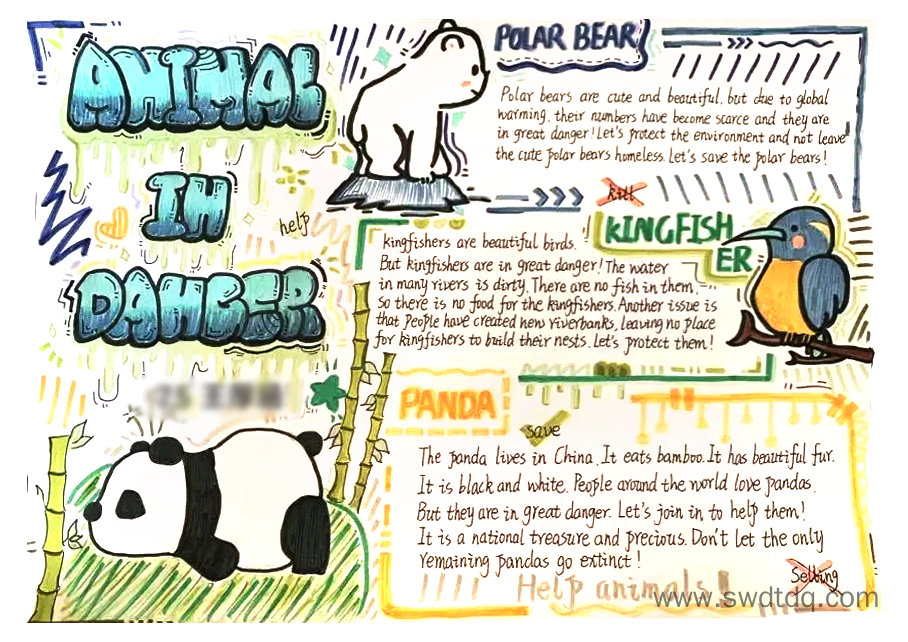 ANIMAL
IN
DANGER
help
POLAR BEAR
Polar bears are cute and beautiful, but due to global
warming, their numbers have become scarce and they are
in great danger! Let's protect the environment and not leave
the cute polar bears homeless. Let's save the polar bears!
kill
KINGFISH
ER
kingfishers are beautiful birds.
But kingfishers are in great danger! The water
in many rivers is dirty. There are no fish in them,
So there is no food for the kingfishers. Another issue is
that people have created new riverbanks, leaving no place
for kingfishers to build their nests. Let's protect them!
PANDA
save
The panda lives in China. It eats bamboo. It has beautiful fur.
It is black and white. People around the world love pandas.
But they are in great danger. Let's join in to help them!
It is a national treasure and precious. Don't let the only
remaining pandas go extinct!
Selling
Help animals!
www.swdtdq.com